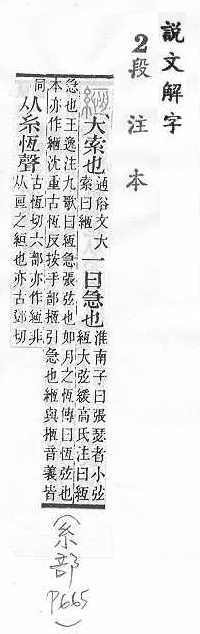 說文解字
2段注本
緪 大索也 通俗文大
索曰緪
一曰急也 淮南子曰張瑟者小弦
緪大弦緩高氏注曰緪
急也王逸注九歌曰緪急張弦也如月之恆傳曰恆弦也
本亦作緪沈重古恆反按手部揯引急也緪與揯音義皆
同
从糸恆聲 古恆切六部亦作絚非
从亘之絚也亦古鄧切
(糸部 P665)